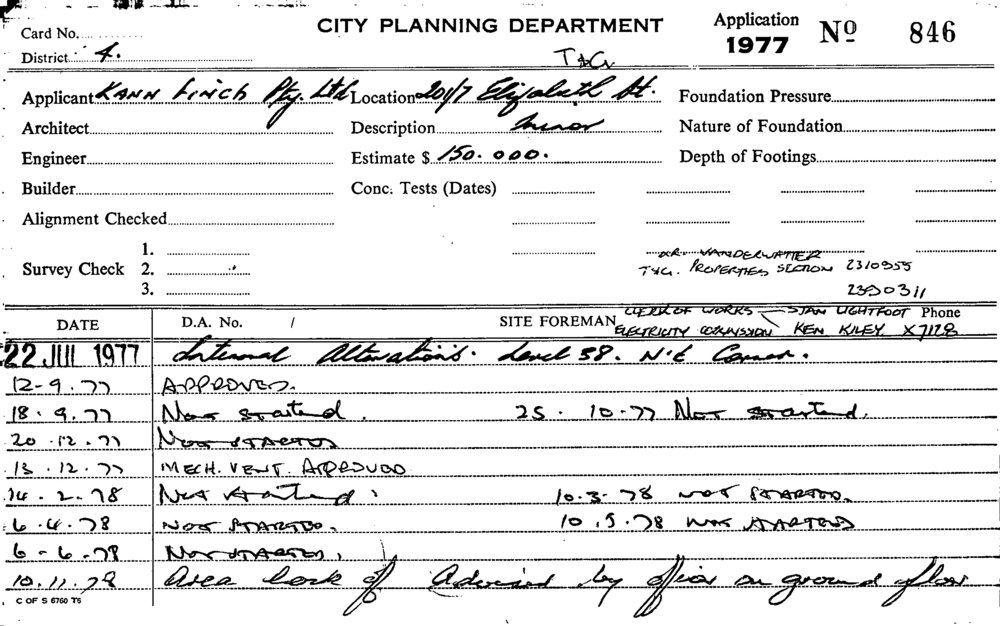 CITY PLANNING DEPARTMENT
Application 1977 Nº 846
Card No.
District 4.
T&G
Applicant KANN FINCH Pty. Ltd Location 201/7 Elizabeth St. Foundation Pressure
Architect Description Minor Nature of Foundation
Engineer Estimate $ 150.000. Depth of Footings
Builder Conc. Tests (Dates)
Alignment Checked
Survey Check 1. 2. 3.
MR. VANDERWATTER
T&G. PROPERTIES SECTION 2310355
2390311
CLERK OF WORKS — STAN LIGHTFOOT Phone
DATE D.A. No. / SITE FOREMAN ELECTRICITY COMMISSION KEN KILEY X7178
22 JUL 1977 Internal Alterations. Level 38. N.E Corner.
12-9.77 APPROVED.
18.9.77 Not started. 25. 10-77 Not started.
20.12.77 NOT STARTED
13.12.77 MECH. VENT. APPROVED
14.2.78 Not started. 10.3-78 NOT STARTED.
6.4.78 NOT STARTED. 10.5.78 NOT STARTED
6-6.78 NOT STARTED.
10.11.78 Area lock off Advised by office on ground floor
C OF S 6760 T6